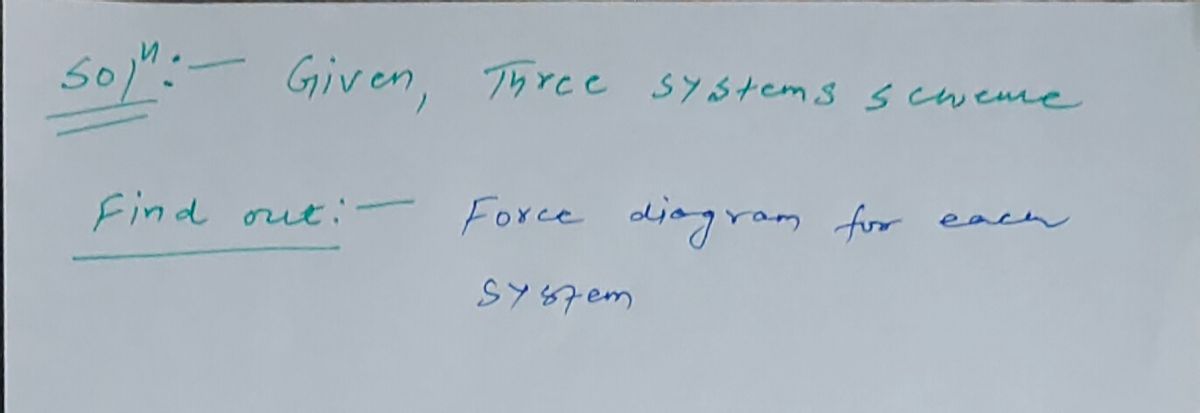 Solⁿ:- Given, Three systems scheme
Find out:- Force diagram for each
system